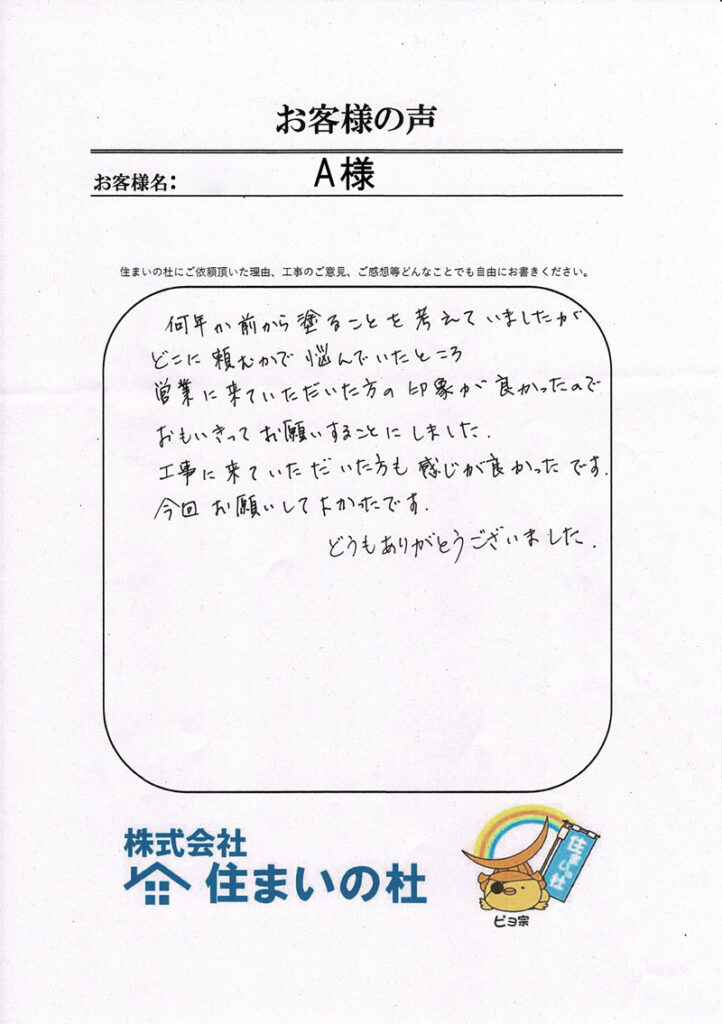 お客様の声
お客様名：　A様
住まいの杜にご依頼頂いた理由、工事のご意見、ご感想等どんなことでも自由にお書きください。
何年か前から塗ることを考えていましたが
どこに頼むかで悩んでいたところ
営業に来ていただいた方の印象が良かったので
おもいきってお願いすることにしました.
工事に来ていただいた方も感じが良かったです.
今回お願いしてよかったです.
どうもありがとうございました.
株式会社
住まいの杜
住まいの杜
ピヨ宗